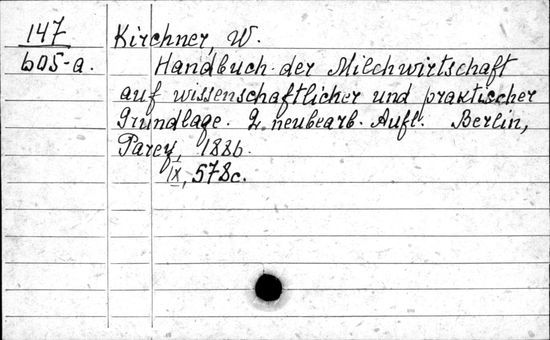 147 Kirchner, W.
605-a. Handbuch der Milchwirtschaft
auf wissenschaftlicher und praktischer
Grundlage. 2 neubearb. Aufl. Berlin,
Parey, 1886.
IX, 578c.